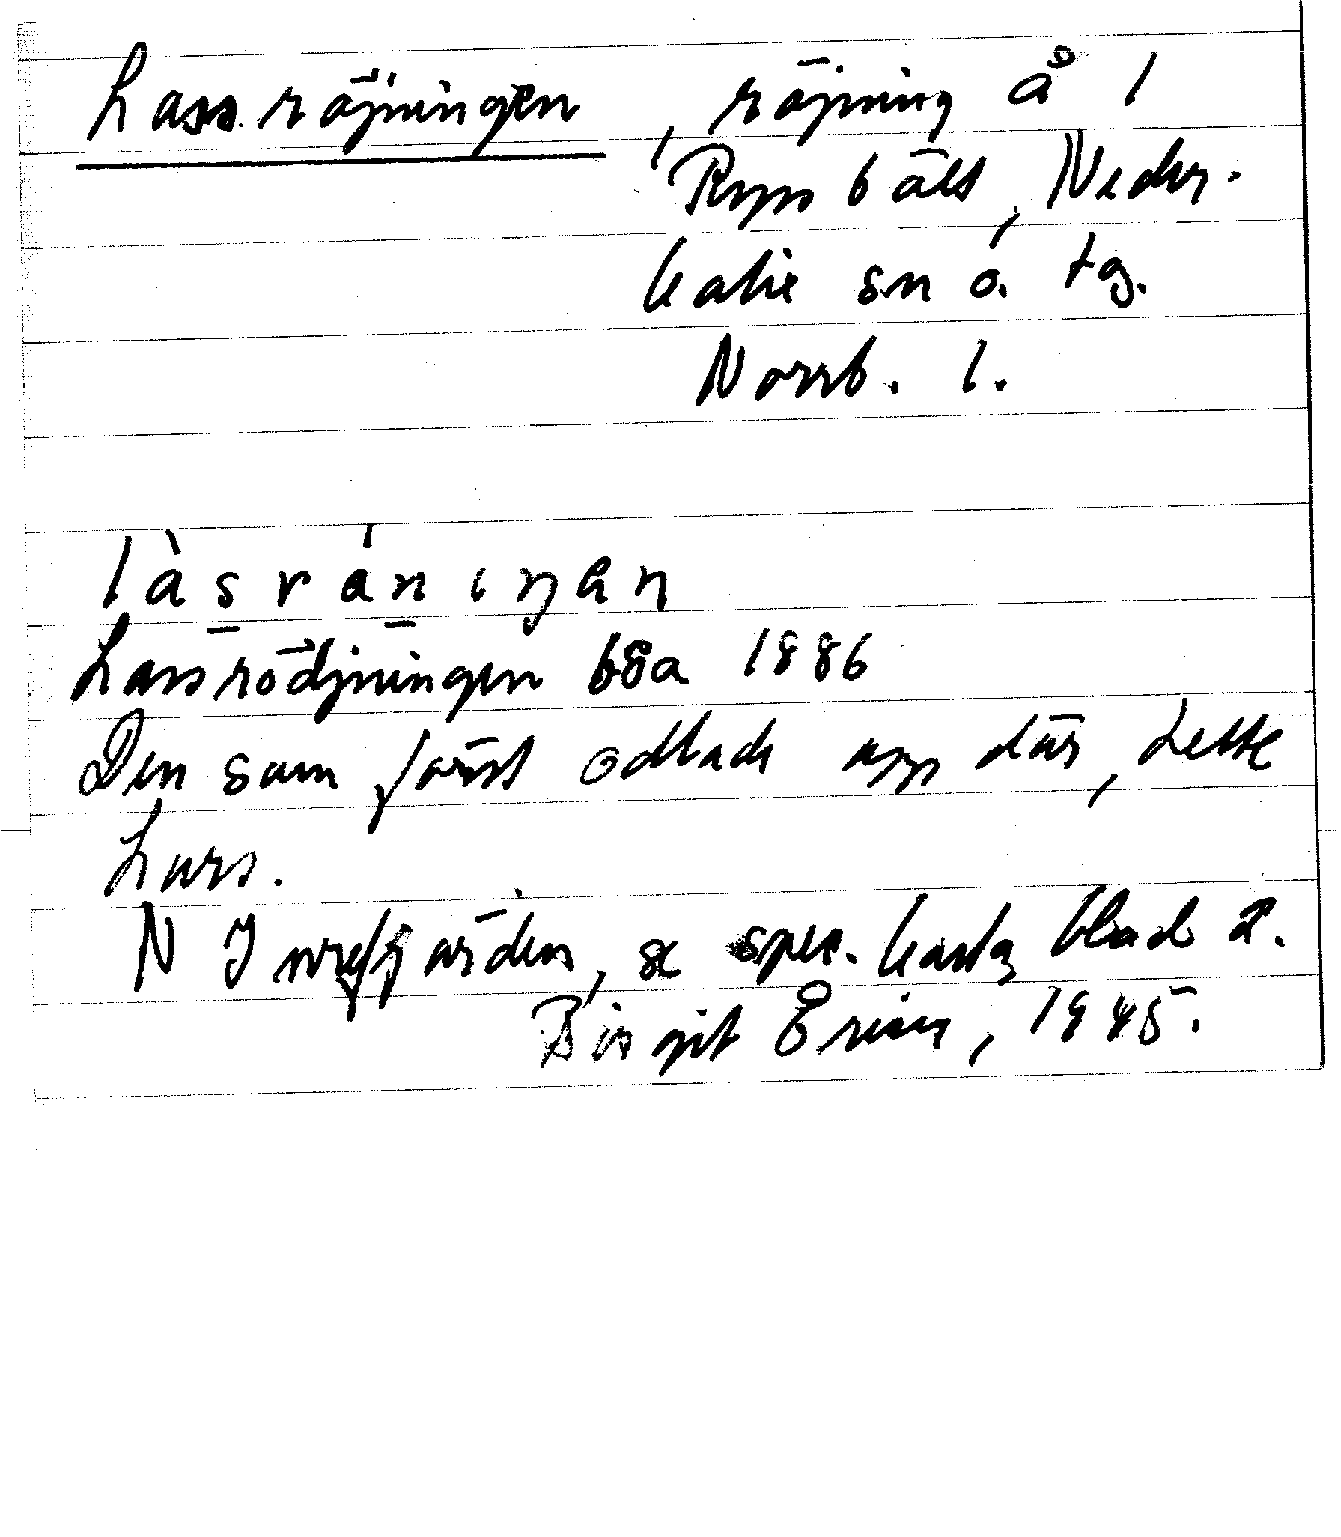 Lassröjningen, röjning å 1
Ryssbält, Neder-
kalix sn o. tg.
Norrb. l.
làsránıŋan
Lassrödjningen 68a 1886
Den som först odlade upp där, hette
Lars.
N Inrefjärden, se spec. karta blad 2.
Birgit Ering, 1945.